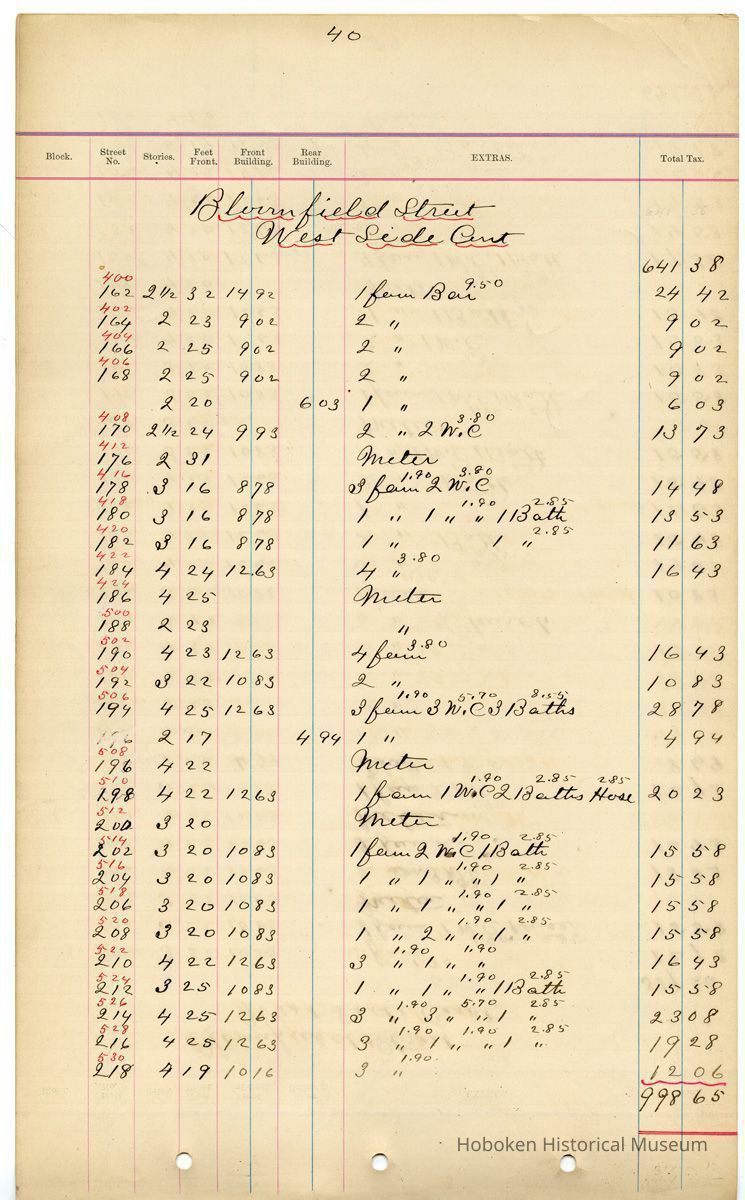 40
Block. Street No. Stories. Feet Front. Front Building. Rear Building. EXTRAS. Total Tax.
Bloomfield Street
West Side Cont
641 38
400
162 2 1/2 32 14 92 1 fam Bar 9.50 24 42
402
164 2 23 9 02 2 " 9 02
404
166 2 25 9 02 2 " 9 02
406
168 2 25 9 02 2 " 9 02
2 20 6 03 1 " 6 03
408
170 2 1/2 24 9 93 2 " 2 W.C 3.80 13 73
412
176 2 31 Meter
416
178 3 16 8 78 3 fam 1.90 2 W.C 3.80 14 48
418
180 3 16 8 78 1 " 1 " " 1.90 1 Bath 2.85 13 53
420
182 3 16 8 78 1 " 1 " 2.85 11 63
422
184 4 24 12 63 4 " 3.80 16 43
424
186 4 25 Meter
500
188 2 23 "
502
190 4 23 12 63 4 fam 3.80 16 43
504
192 3 22 10 83 2 " 10 83
506
194 4 25 12 63 3 fam 1.90 3 W.C 5.70 3 Baths 8.55 28 78
196 2 17 4 94 1 " 4 94
508
196 4 22 Meter
510
198 4 22 12 63 1 fam 1 W.C 1.90 2 Baths 2.85 Hose 2.85 20 23
512
200 3 20 Meter
514
202 3 20 10 83 1 fam 2 W.C 1.90 1 Bath 2.85 15 58
516
204 3 20 10 83 1 " 1 " 1.90 " 1 " 2.85 15 58
518
206 3 20 10 83 1 " 1 " 1.90 " 1 " 2.85 15 58
520
208 3 20 10 83 1 " 2 " 1.90 " 1 " 2.85 15 58
522
210 4 22 12 63 3 " 1.90 1 " " 1.90 16 43
524
212 3 25 10 83 1 " 1 " " 1.90 1 Bath 2.85 15 58
526
214 4 25 12 63 3 " 1.90 3 " " 5.70 1 " 2.85 23 08
528
216 4 25 12 63 3 " 1.90 1 " " 1.90 1 " 2.85 19 28
530
218 4 19 10 16 3 " 1.90 12 06
998 65
Hoboken Historical Museum